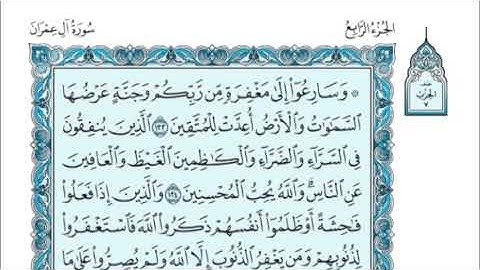 سُورَةُ آلِ عِمْرَانَ
الجُزْءُ الرَّابِعُ
۞ وَسَارِعُوٓا۟ إِلَىٰ مَغْفِرَةٍ مِّن رَّبِّكُمْ وَجَنَّةٍ عَرْضُهَا
ٱلسَّمَٰوَٰتُ وَٱلْأَرْضُ أُعِدَّتْ لِلْمُتَّقِينَ ١٣٣ ٱلَّذِينَ يُنفِقُونَ
فِى ٱلسَّرَّآءِ وَٱلضَّرَّآءِ وَٱلْكَٰظِمِينَ ٱلْغَيْظَ وَٱلْعَافِينَ
عَنِ ٱلنَّاسِ وَٱللَّهُ يُحِبُّ ٱلْمُحْسِنِينَ ١٣٤ وَٱلَّذِينَ إِذَا فَعَلُوا۟
فَٰحِشَةً أَوْ ظَلَمُوٓا۟ أَنفُسَهُمْ ذَكَرُوا۟ ٱللَّهَ فَٱسْتَغْفَرُوا۟
لِذُنُوبِهِمْ وَمَن يَغْفِرُ ٱلذُّنُوبَ إِلَّا ٱللَّهُ وَلَمْ يُصِرُّوا۟ عَلَىٰ مَا
الحِزْبُ
٧